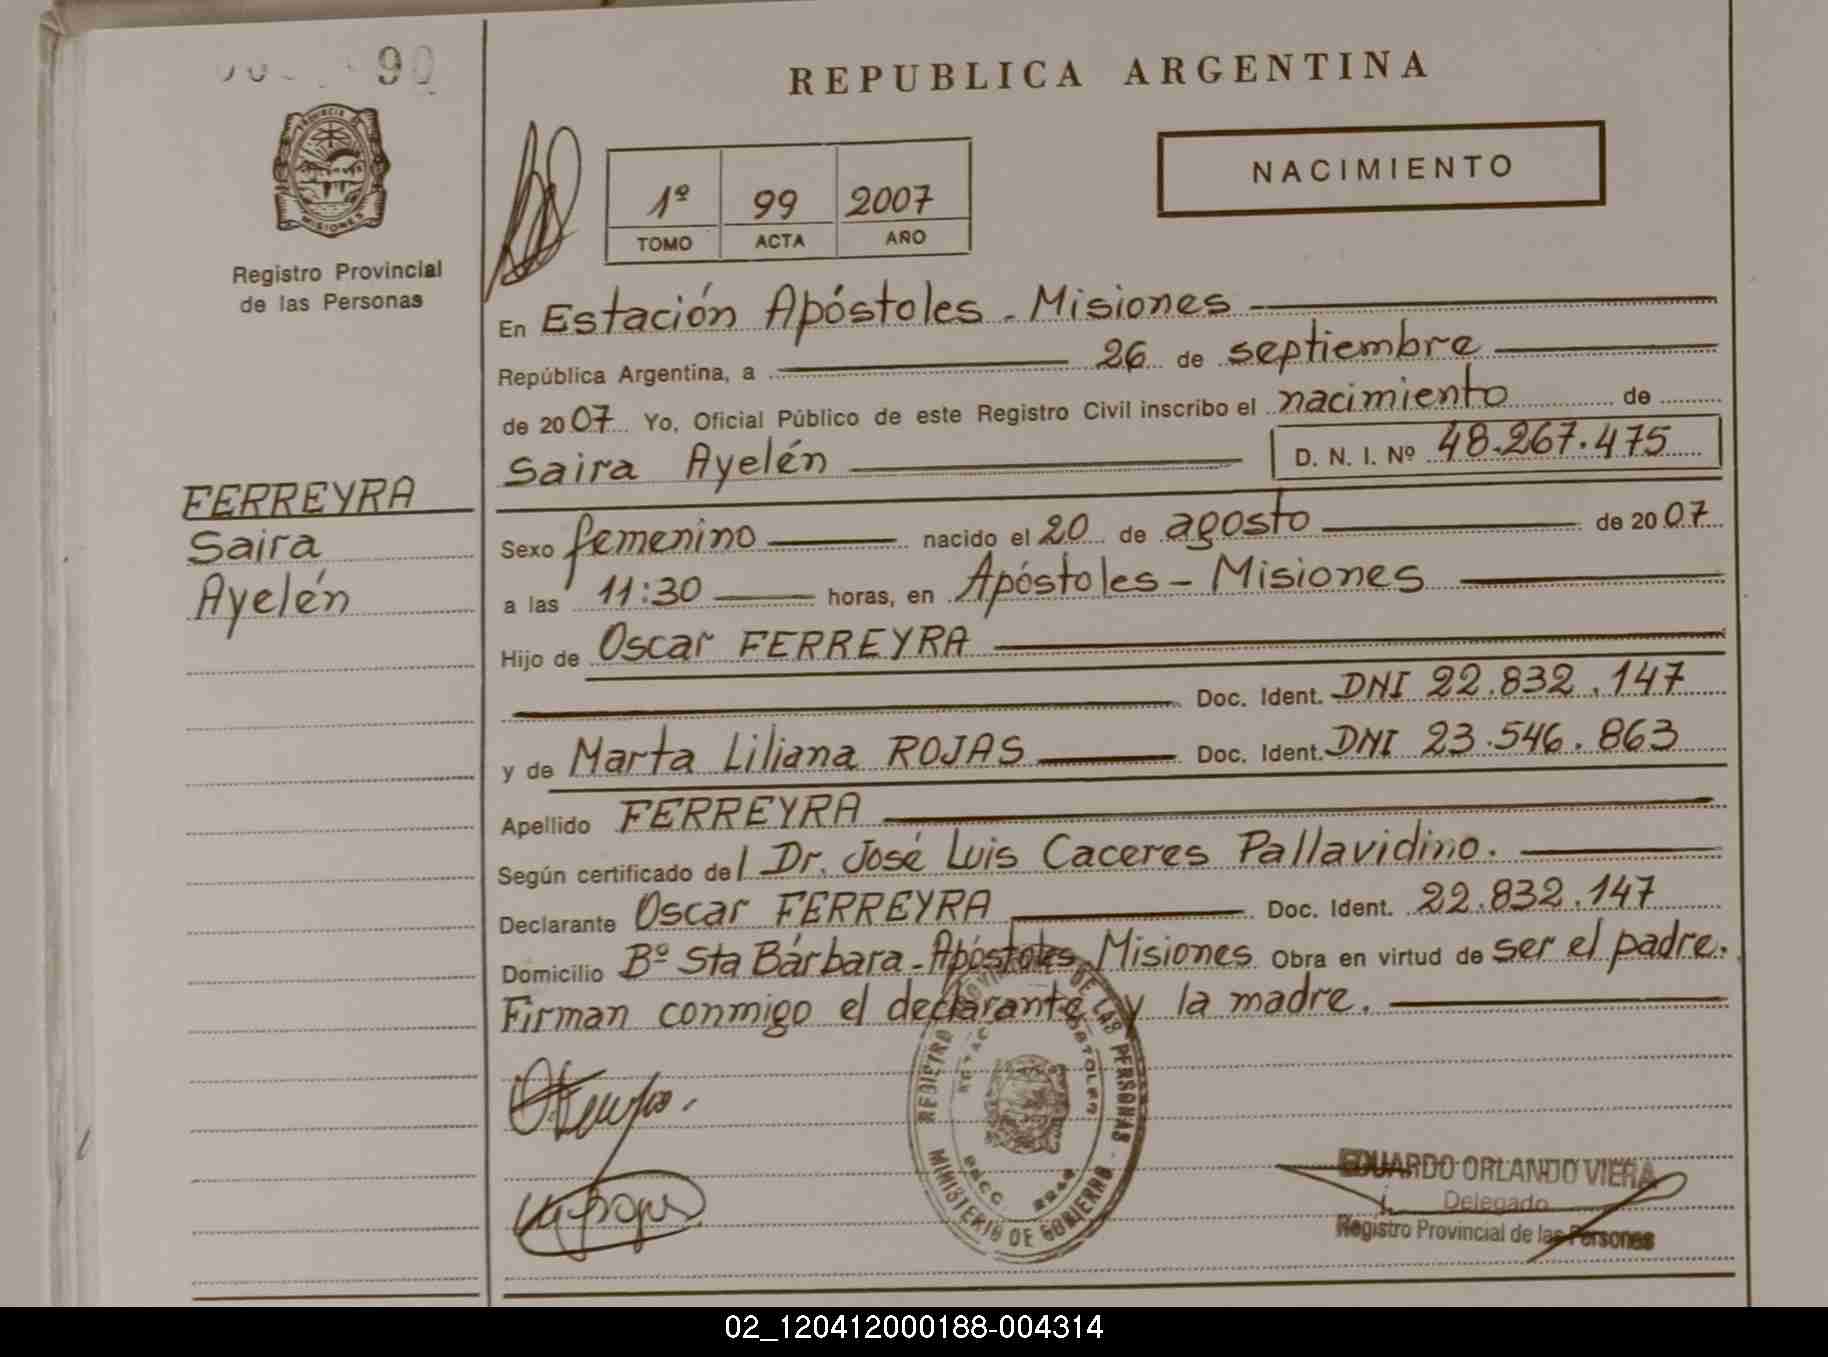 90
REPUBLICA ARGENTINA
NACIMIENTO
1º 99 2007
TOMO ACTA AÑO
PROVINCIA DE MISIONES
Registro Provincial
de las Personas
En Estación Apóstoles - Misiones
República Argentina, a 26 de septiembre
de 2007 Yo, Oficial Público de este Registro Civil inscribo el nacimiento de
Saira Ayelén D. N. I. Nº 48.267.475
FERREYRA
Saira
Ayelén
Sexo femenino nacido el 20 de agosto de 2007
a las 11:30 horas, en Apóstoles - Misiones
Hijo de Oscar FERREYRA
Doc. Ident. DNI 22.832.147
y de Marta Liliana ROJAS Doc. Ident. DNI 23.546.863
Apellido FERREYRA
Según certificado del Dr. José Luis Caceres Pallavidino.
Declarante Oscar FERREYRA Doc. Ident. 22.832.147
Domicilio Bº Sta Bárbara - Apóstoles, Misiones Obra en virtud de ser el padre.
Firman conmigo el declarante y la madre.
REGISTRO PROVINCIAL DE LAS PERSONAS - MINISTERIO DE GOBIERNO
EDUARDO ORLANDO VIERA
Delegado
Registro Provincial de las Personas
02_120412000188-004314